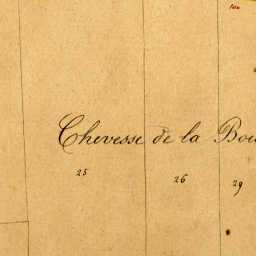 Chevesse de la
25
26
29